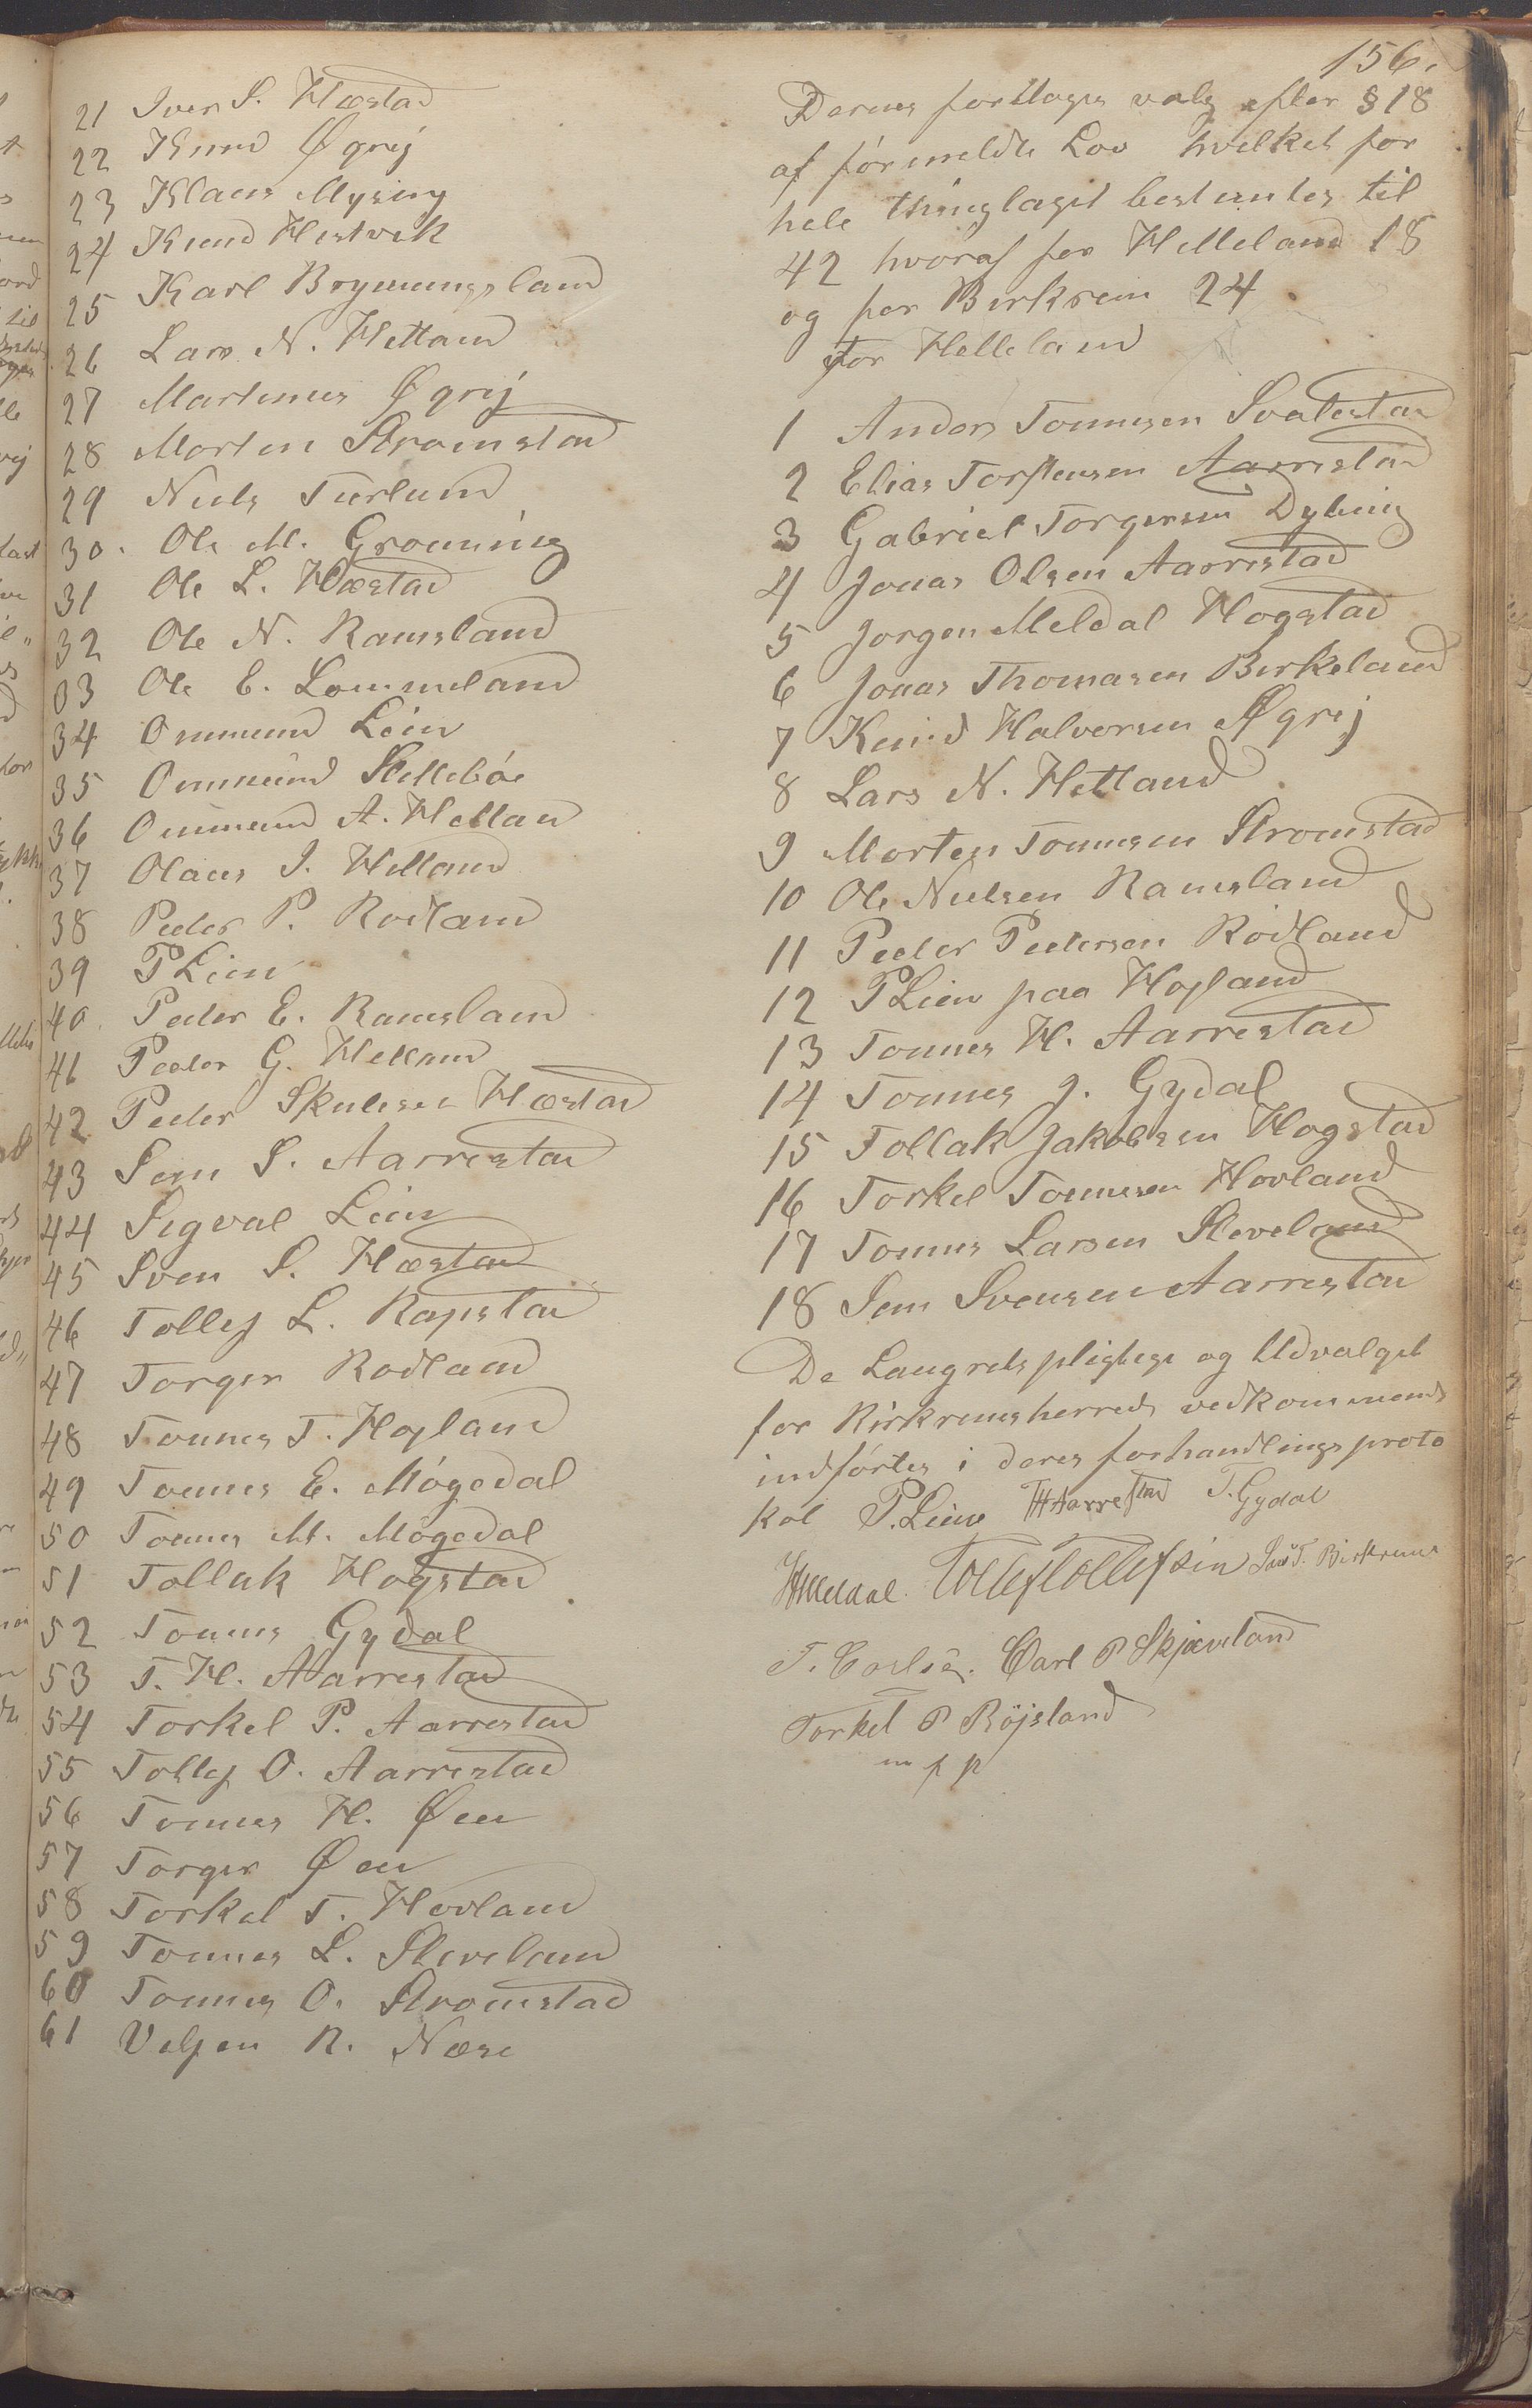 156.
21 Iver S. Hæstad
22 Knud Øgrej
23 Klaus Mysing
24 Knud Hestvik
25 Karl Brynningsland
26 Lars N. Hettand
27 Martinus Øgrej
28 Morten Strømstad
29 Niels Turlund
30. Ole M. Grønning
31 Ole L. Hæstad
32 Ole N. Ramsland
33 Ole E. Lommeland
34 Ommund Lein
35 Ommund Skillebøe
36 Ommund A. Helland
37 Olaus I. Helland
38 Peder P. Rodland
39 P Lien
40. Peder E. Ramsland
41 Peder G. Helland
42 Peder Skulesen Hæstad
43 Sem S. Aarrestad
44 Sigval Lein
45 Sven S. Hæstad
46 Tollef L. Rapstad
47 Torger Rodland
48 Tønnes T. Hogland
49 Tønnes E. Møgedal
50 Tønnes M. Møgedal
51 Tollak Hogstad
52 Tønnes Gydal
53 T. H. Aarrestad
54 Torkel P. Aarrestad
55 Tollef O. Aarrestad
56 Tønnes H. Øen
57 Torger Øen
58 Torkel T. Hovland
59 Tønnes L. Sleveland
60 Tønnes O. Strømstad
61 Veljen R. Nœse
Dernes forttoges valg efter § 18
af førmeldte Lov hvilket for
hele thinglaget bestemtes til
42 hvoraf for Helleland 18
og for Birkrem 24
for Helleland
1 Anders Tonnesen Svalestad
2 Elias Torstensen Aarrestad
3 Gabriel Torgersen Dybing
4 Jonas Olsen Aarrestad
5 Jorgen Meldal Hogstad
6 Jonas Thomasen Birkeland
7 Knud Halvorsen Øgrej
8 Lars N. Hetland
9 Morten Tonnesen Strømstad
10 Ole Nielsen Ramsland
11 Peder Pedersen Rodland
12 P Lien paa Hogland
13 Tonnes H. Aarrestad
14 Tonnes J. Gydal
15 Tollak Jakobsen Hogstad
16 Torkel Tonnesen Hovland
17 Tonnes Larsen Sleveland
18 Sem Svensen Aarrestad
De Laugretspligtige og Udvalget
for Birkremsherreds vedkommende
indførtes i deres forhandlingsproto
kol P. Lien TH Aarrestad T. Gydal
Tollef Tollefsin T. Birkrem
Carl P Skjæveland
Torkel P Röjsland
m p p